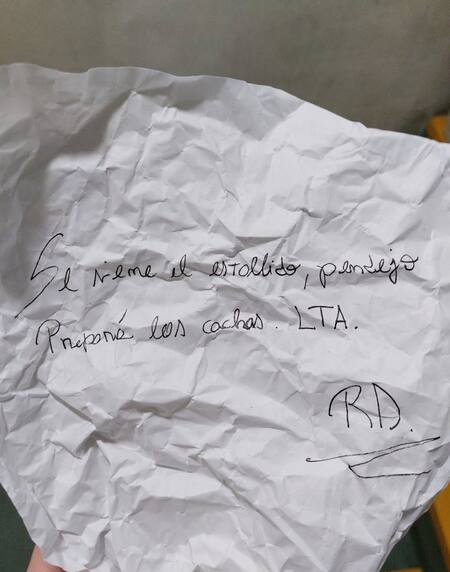 Se viene el estallido, pendejo
Prepará las cachas. LTA.
RD.